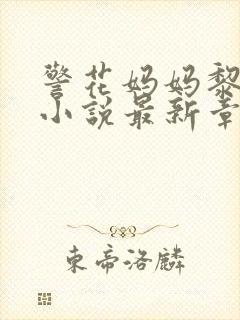 警花妈妈黎
小说最新章
東帝洛麟